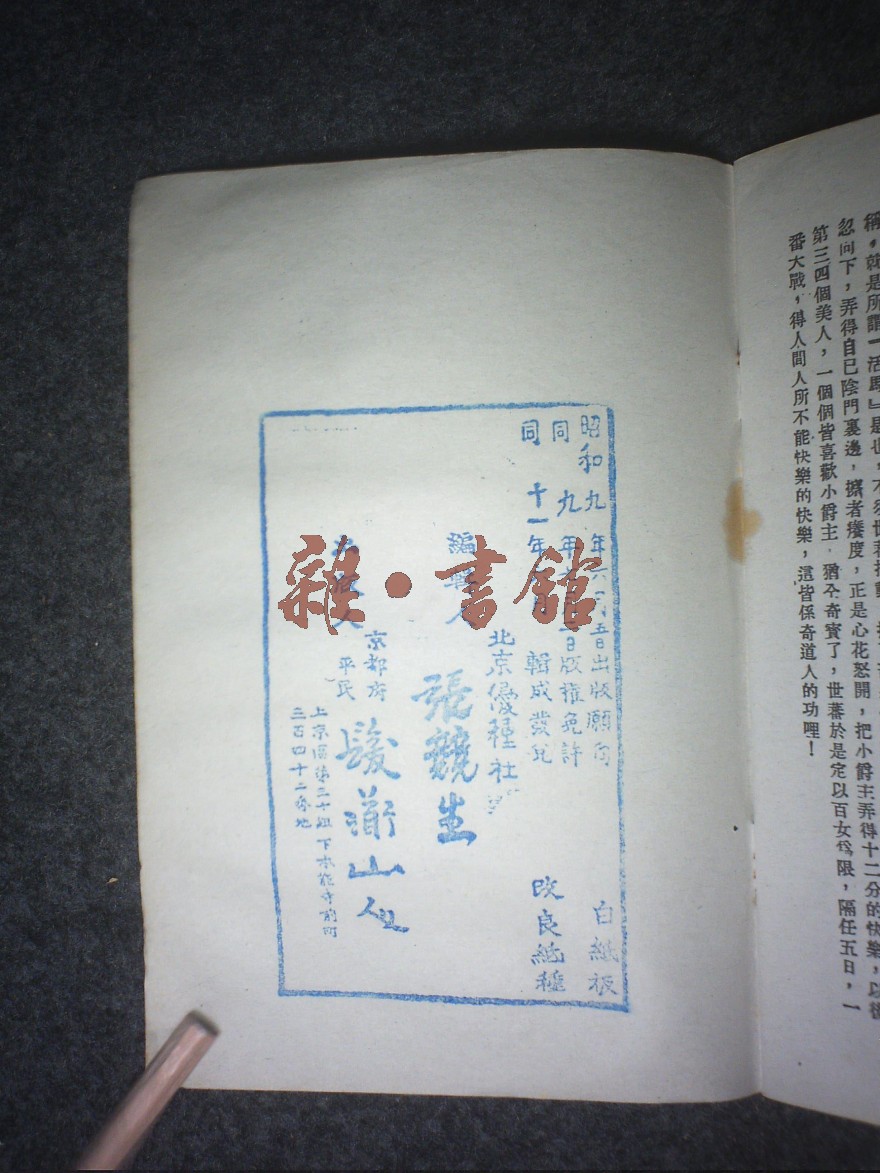 忽向下，弄得自已陰門裏邊，擦者癢度，正是心花怒開，把小爵主弄得十二分的快樂，以後
第三四個美人，一個個皆喜歡小爵主，猶仝奇賓了，世蕃於是定以百女爲限，隔任五日，一
番大戰，得人間人所不能快樂的快樂，這皆係奇道人的功哩！
昭和九年六月五日出版願向
同 九年 日版權免許
同 十一年 輯成發兌
白紙板
改良紙種
北京優種社
編輯人 張競生
京都府
平民
山人
上京區第三十組下本能寺前町
三百四十二番地
雜·書館